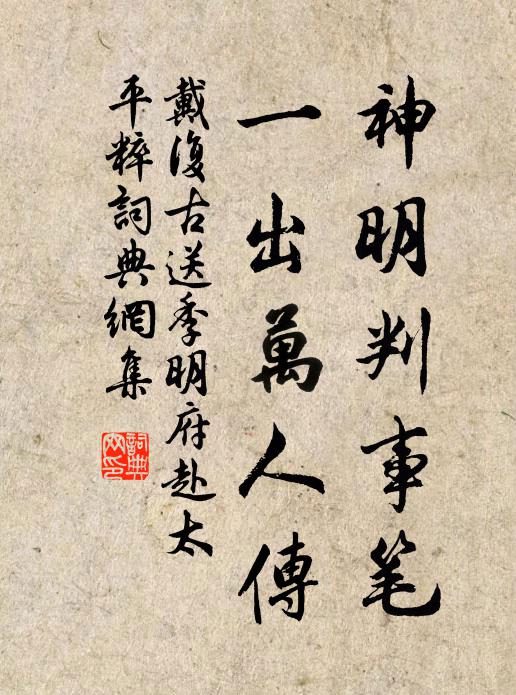 神明判事笔
一出萬人傳
戴復古送季明府赴太
平粹詞典網集
詞典网印